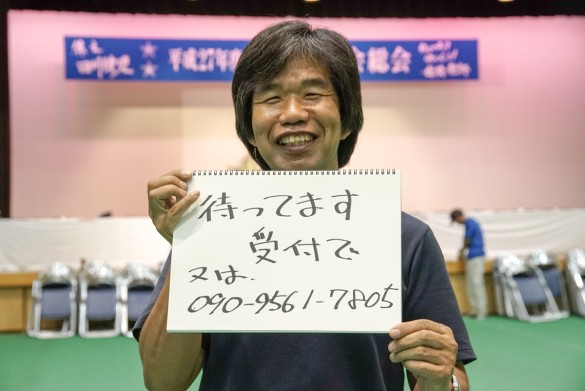 平成27年度
会総会
待ってます
受付で
又は、
090-9561-7805